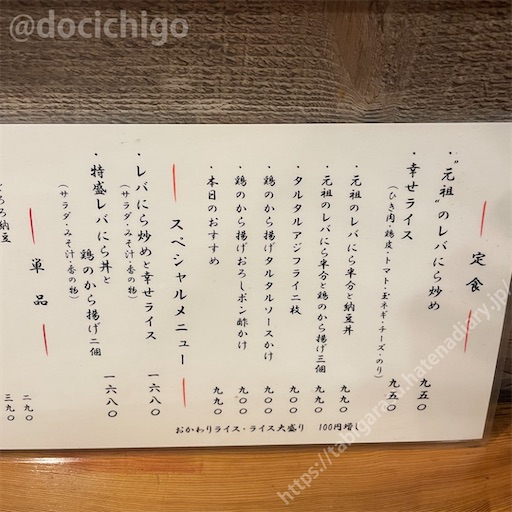 @docichigo
定食
・"元祖"のレバにら炒め 九五〇
・幸せライス 九五〇
（ひき肉・鶏皮・トマト・玉ネギ・チーズ・のり）
・元祖のレバにら半分と納豆丼 九九〇
・元祖のレバにら半分と鶏のから揚げ三個 九九〇
・タルタルアジフライ二枚 九九〇
・鶏のから揚げタルタルソースかけ 九九〇
・鶏のから揚げおろしポン酢かけ 九九〇
・本日のおすすめ 九九〇
スペシャルメニュー
・レバにら炒めと幸せライス 一六八〇
（サラダ・みそ汁・香の物）
・特盛レバにら丼と
鶏のから揚げ二個 一六八〇
（サラダ・みそ汁・香の物）
単品
二九〇
納豆 三九〇
おかわりライス・ライス大盛り 100円増し